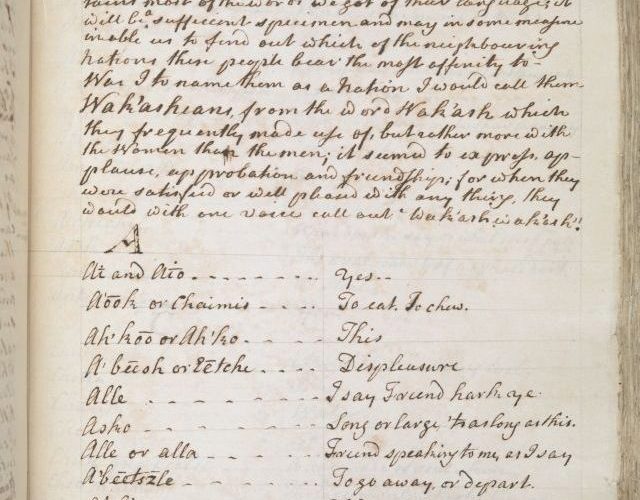 most of the words we got of their language; it
will be a sufficcent specimen and may in some measure
inable us to find out which of the neighbouring
Nations these people bear the most affinity to-
Was I to name them as a Nation I would call them
Wak'asheans, from the word Wak'ash which
they frequently made use of, but rather more with
the Women than the men; it seemed to express, ap-
plause, approbation and friendship; for when they
were satisfied or well pleased with any thing, they
would with one voice call out Wak'ash wak'ash!!
A
Ai and Aio - - - - - - - - Yes..
A'ook or Chaimis - - - - To eat. To chew.
Ah'kōō or Ah'ko - - - - This
A'beesh or Eētche - - - - Displeasure
Alle - - - - - - - - - I say Friend hark ye.
Asko - - - - - - - - Long or large 'tis as long as this.
Alle or alla - - - - - - Friend speaking to me, as I say
A'bēētszle - - - - - - - To go away, or depart.